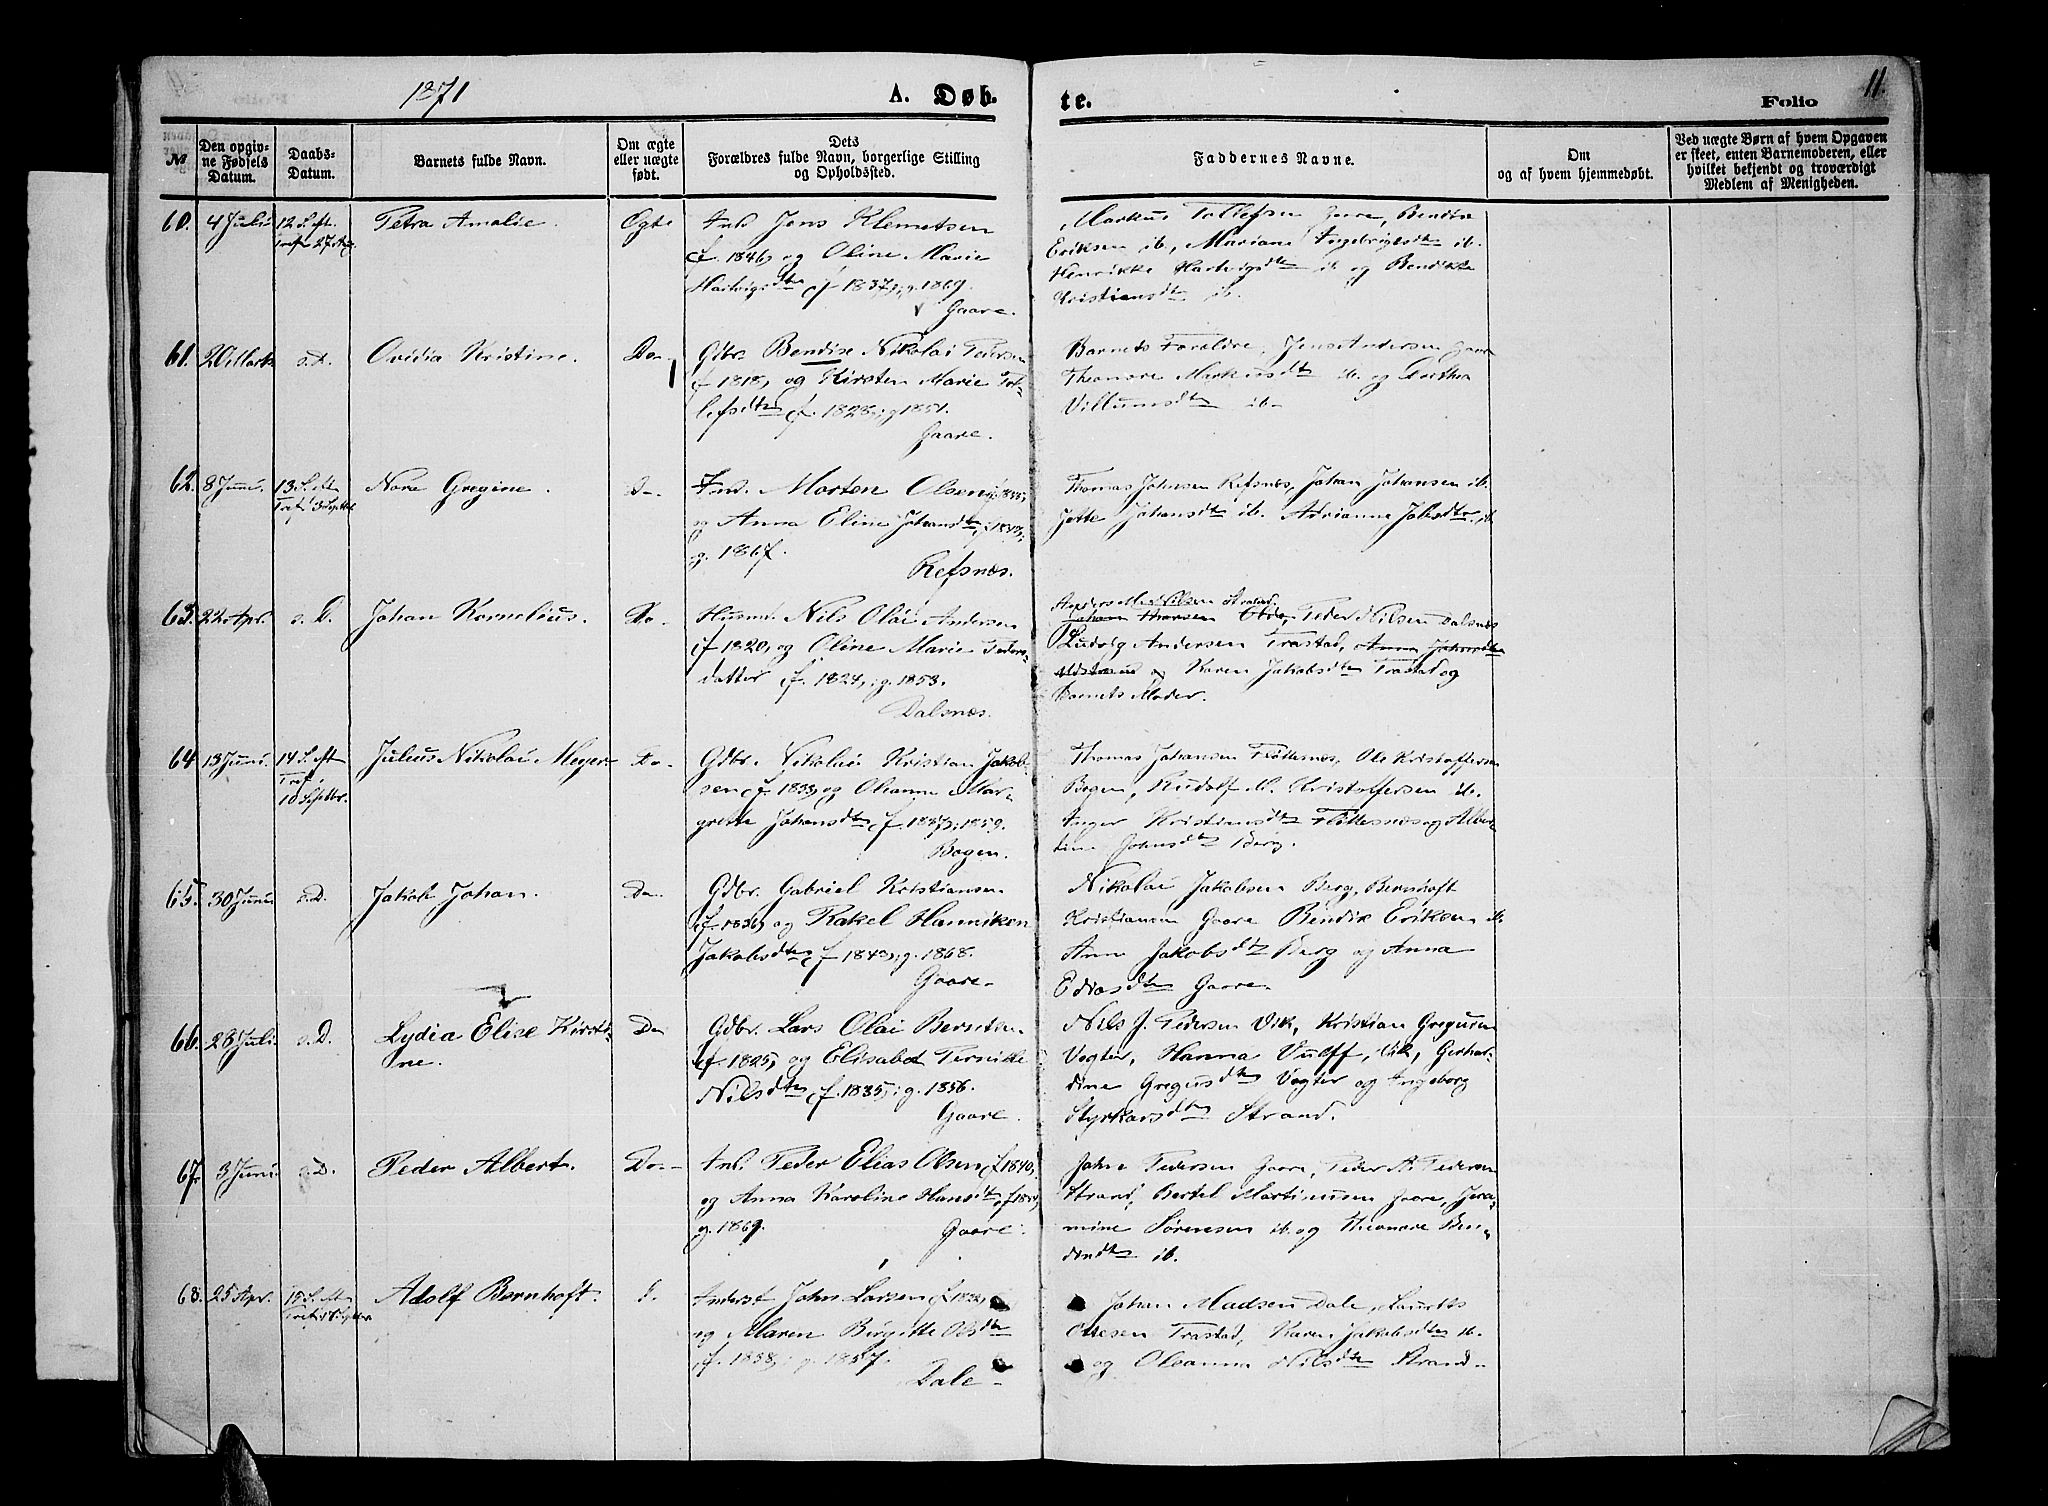 1871
A. Døb-
te.
Folio 11.
№
Den opgiv-
ne Fødsels
Datum.
Daabs-
Datum.
Barnets fulde Navn.
Om ægte
eller uægte
født.
Dets
Forældres fulde Navn, borgerlige Stilling
og Opholdssted.
Faddernes Navne.
Om
og af hvem hjemmedøbt.
Ved uægte Børn af hvem Opgaven
er skeet, enten Barnemoderen, eller
hvilket bekjendt og troværdigt
Medlem af Menigheden.
60. 4 Juli 12 S. eft.
Tref. 27 Aug.
Petra Amalie.
Ægte
Ind. Jens Klemetsen
f. 1846, og Oline Marie
Hartvigsdtr f 1837; g. 1869.
Gaare.
Markus Tollefsen Gaare, Bendix
Eriksen ib., Mariane Ingebrigtsdtr ib.
Henrikke Hartvigsdtr ib og Bendikte
Kristiansdtr ib.
61. 20 Marts s.D.
Ovidia Kristine.
Do.
Gdbr. Bendix Nikolai Pedersen
f 1818, og Kirsten Marie Tol-
lefsdtr f. 1828; g 1851.
Gaare.
Barnets Forældre, Jens Andersen Gaare
Theonore Markusdtr ib. og Dorthea
Villumsdtr ib.
62. 8 Juni. 13 S. eft
Tref. 3 Septbr
Nora Gregine.
Do.
Ind. Morten Olsen
og Anna Eline Johansdtr, f 1843;
g. 1867.
Refsnes.
Thomas Johnsen Refsnæs, Johan Johansen ib.
Jette Johansdtr ib. Adrianna
63. 22 Apr. s.D.
Johan Kornelius.
Do.
Husmd. Nils Olai Andersen
f 1820, og Oline Marie Peders-
datter f. 1824; g. 1853.
Dalsnæs.
Nilsen Trastad.
Peder Nilsen Dalsnæs
Ludvig Andersen Trastad,
og Karen Jakobsdtr Trastad og
Barnets Moder.
64 13 Juni. 14 S. eft
Tref.
10 Septbr.
Julius Nikolai Meyer
Do.
Gdbr. Nikolai Kristian Jakob-
sen f. 1833, og Oleanna Mar-
grette Johansdtr f. 1837; 1859.
Bogen.
Thomas Johansen Flottesnæs, Ole Kristoffersen
Bogen, Rudolf M. Kristoffersen ib.
Inger Kristiansdtr Flottesnæs og Alber-
tine Johnsdtr Berg.
65. 30 Juni s.D.
Jakob Johan.
Do.
Gdbr. Gabriel Kristiansen
f. 1836, og Rakel Hanniken
Jakobsdtr f 1843; g. 1868.
Gaare.
Nikolai Jakobsen Berg, Bernhoft
Kristiansen Gaare Bendix Eriksen ib.
Ane Jakobsdtr Berg og Anna
Gaare.
66. 28 Juli. s.D.
Lydia Elise Kirsti-
ne.
Do
Gdbr. Lars Olai Berntsen
f. 1825, og Elisabet Pernille
Nilsdtr f. 1835; g. 1856.
Gaare.
Nils J. Pedersen Vik, Kristian Gregusen
Vogter, Hanna Vulff, Vik, Gerhar-
dine Gregusdtr Vogter og Ingeborg
Styrkarsdtr Strand.
67. 3 Juni s.D.
Peder Albert.
Do.
Ind. Peder Elias Olsen f 1840,
og Anna Karoline Hansdtr,
g. 1869.
Gaare.
Johan Pedersen Gaare, Peder A. Pedersen
Strand, Bertel Martinusen Gaare, Jera-
mine Sørensen ib. og Theonore Ben-
dixdtr ib.
68. 25 Apr. 15 S. eft
Tref. 17 Septbr
Adolf Bernhoft.
Inderst John Larsen f. 1832,
og Maren Birgitte Olsdtr
f. 1838; g. 1857.
Dale
Johan Madsen Dale, Laurits
Ottesen Trastad, Karen Jakobsdtr ib.
og Oleanna Nilsdtr Strand